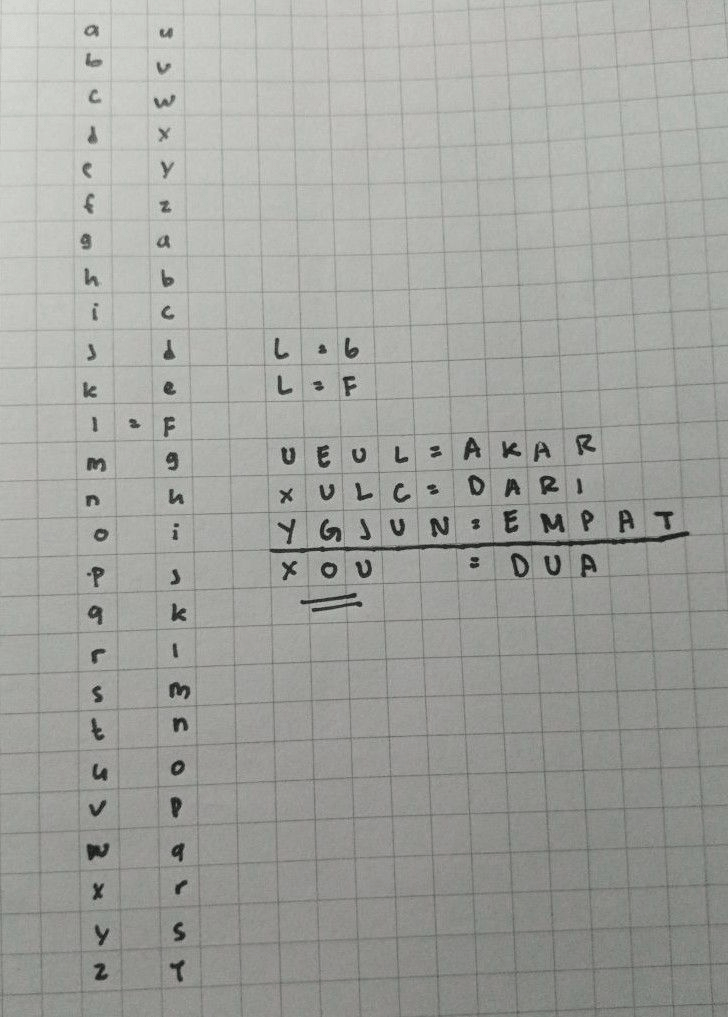 a u
b v
c w
d x
e y
f z
g a
h b
i c
j d
k e
l = F
m g
n h
o i
p j
q k
r l
s m
t n
u o
v p
w q
x r
y s
z T
L = 6
L = F
U E U L = A K A R
X U L C = D A R I
Y G J U N = E M P A T
X O U = D U A